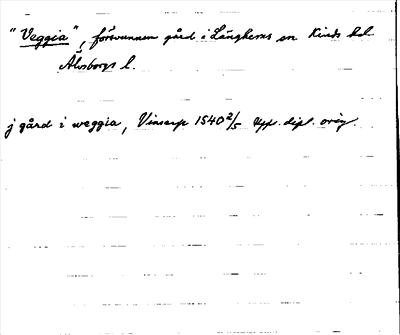 "Veggia", försvunnen gård i Länghems sn Kinds hd.
Älvsborgs l.
j gård i weggia, Vinsarp 1540 2/5 Uppl. dipl. orig.